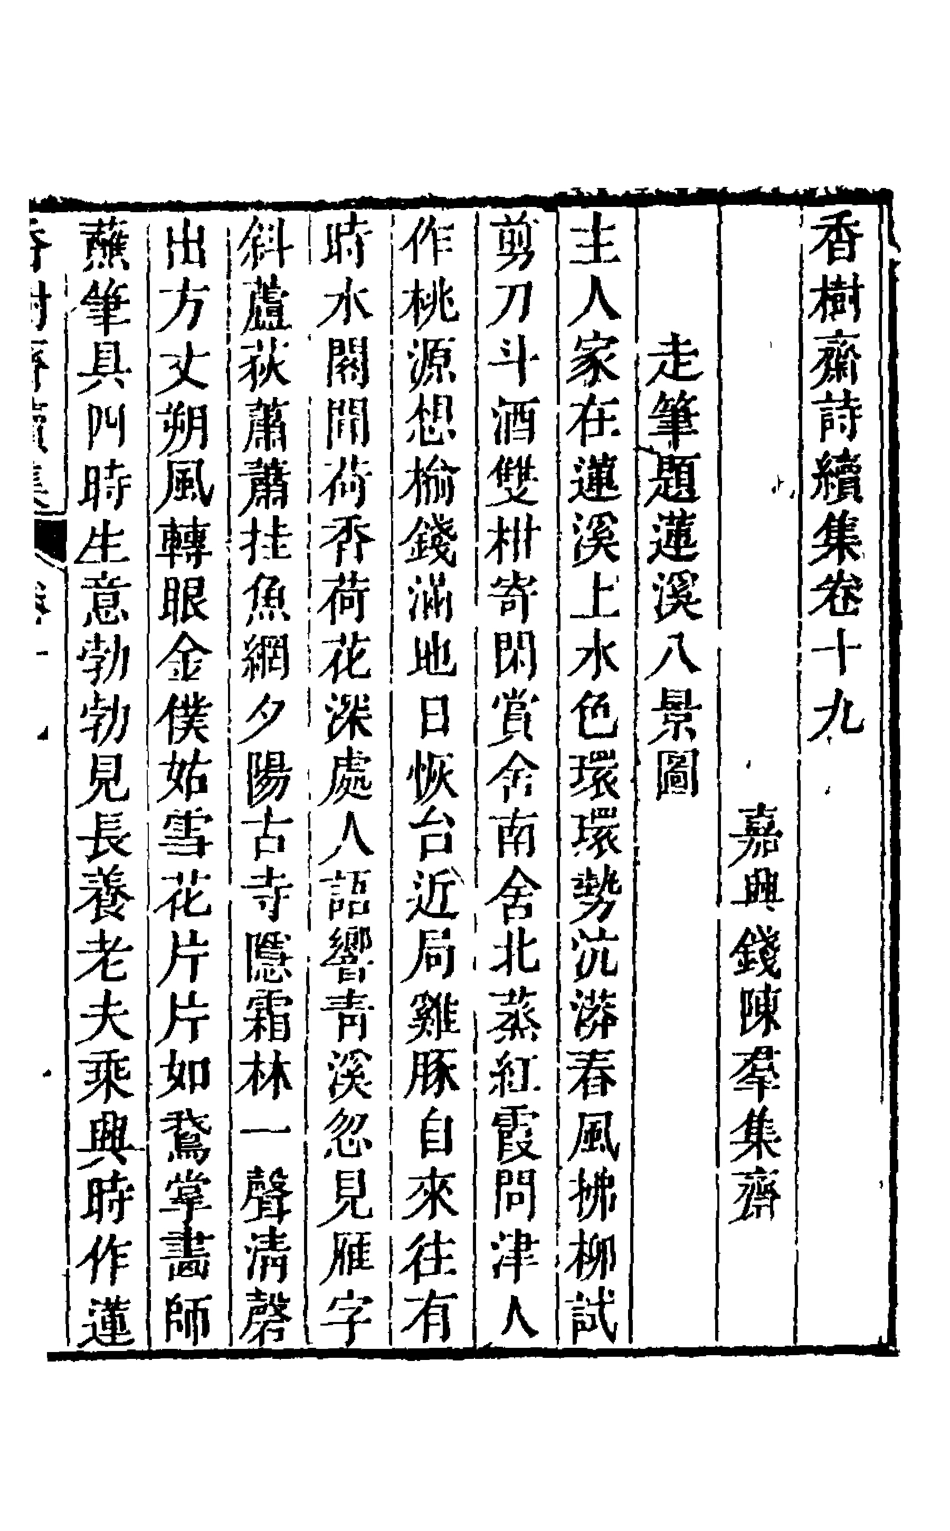 香樹齋詩續集卷十九
嘉興錢陳羣集齋
走筆題蓮溪八景圖
主人家在蓮溪上水色環環勢沆漭春風拂柳試
剪刀斗酒雙柑寄閑賞舍南舍北蒸紅霞問津人
作桃源想榆錢滿地日恢台近局雞豚自來往有
時水閣聞荷香荷花深處人語響青溪忽見雁字
斜蘆荻蕭蕭挂魚網夕陽古寺隱霜林一聲清磬
出方丈朔風轉眼金僕姑雪花片片如鵞掌畵師
蘸筆具四時生意勃勃見長養老夫乘興時作蓮
香樹齋續集 卷十九